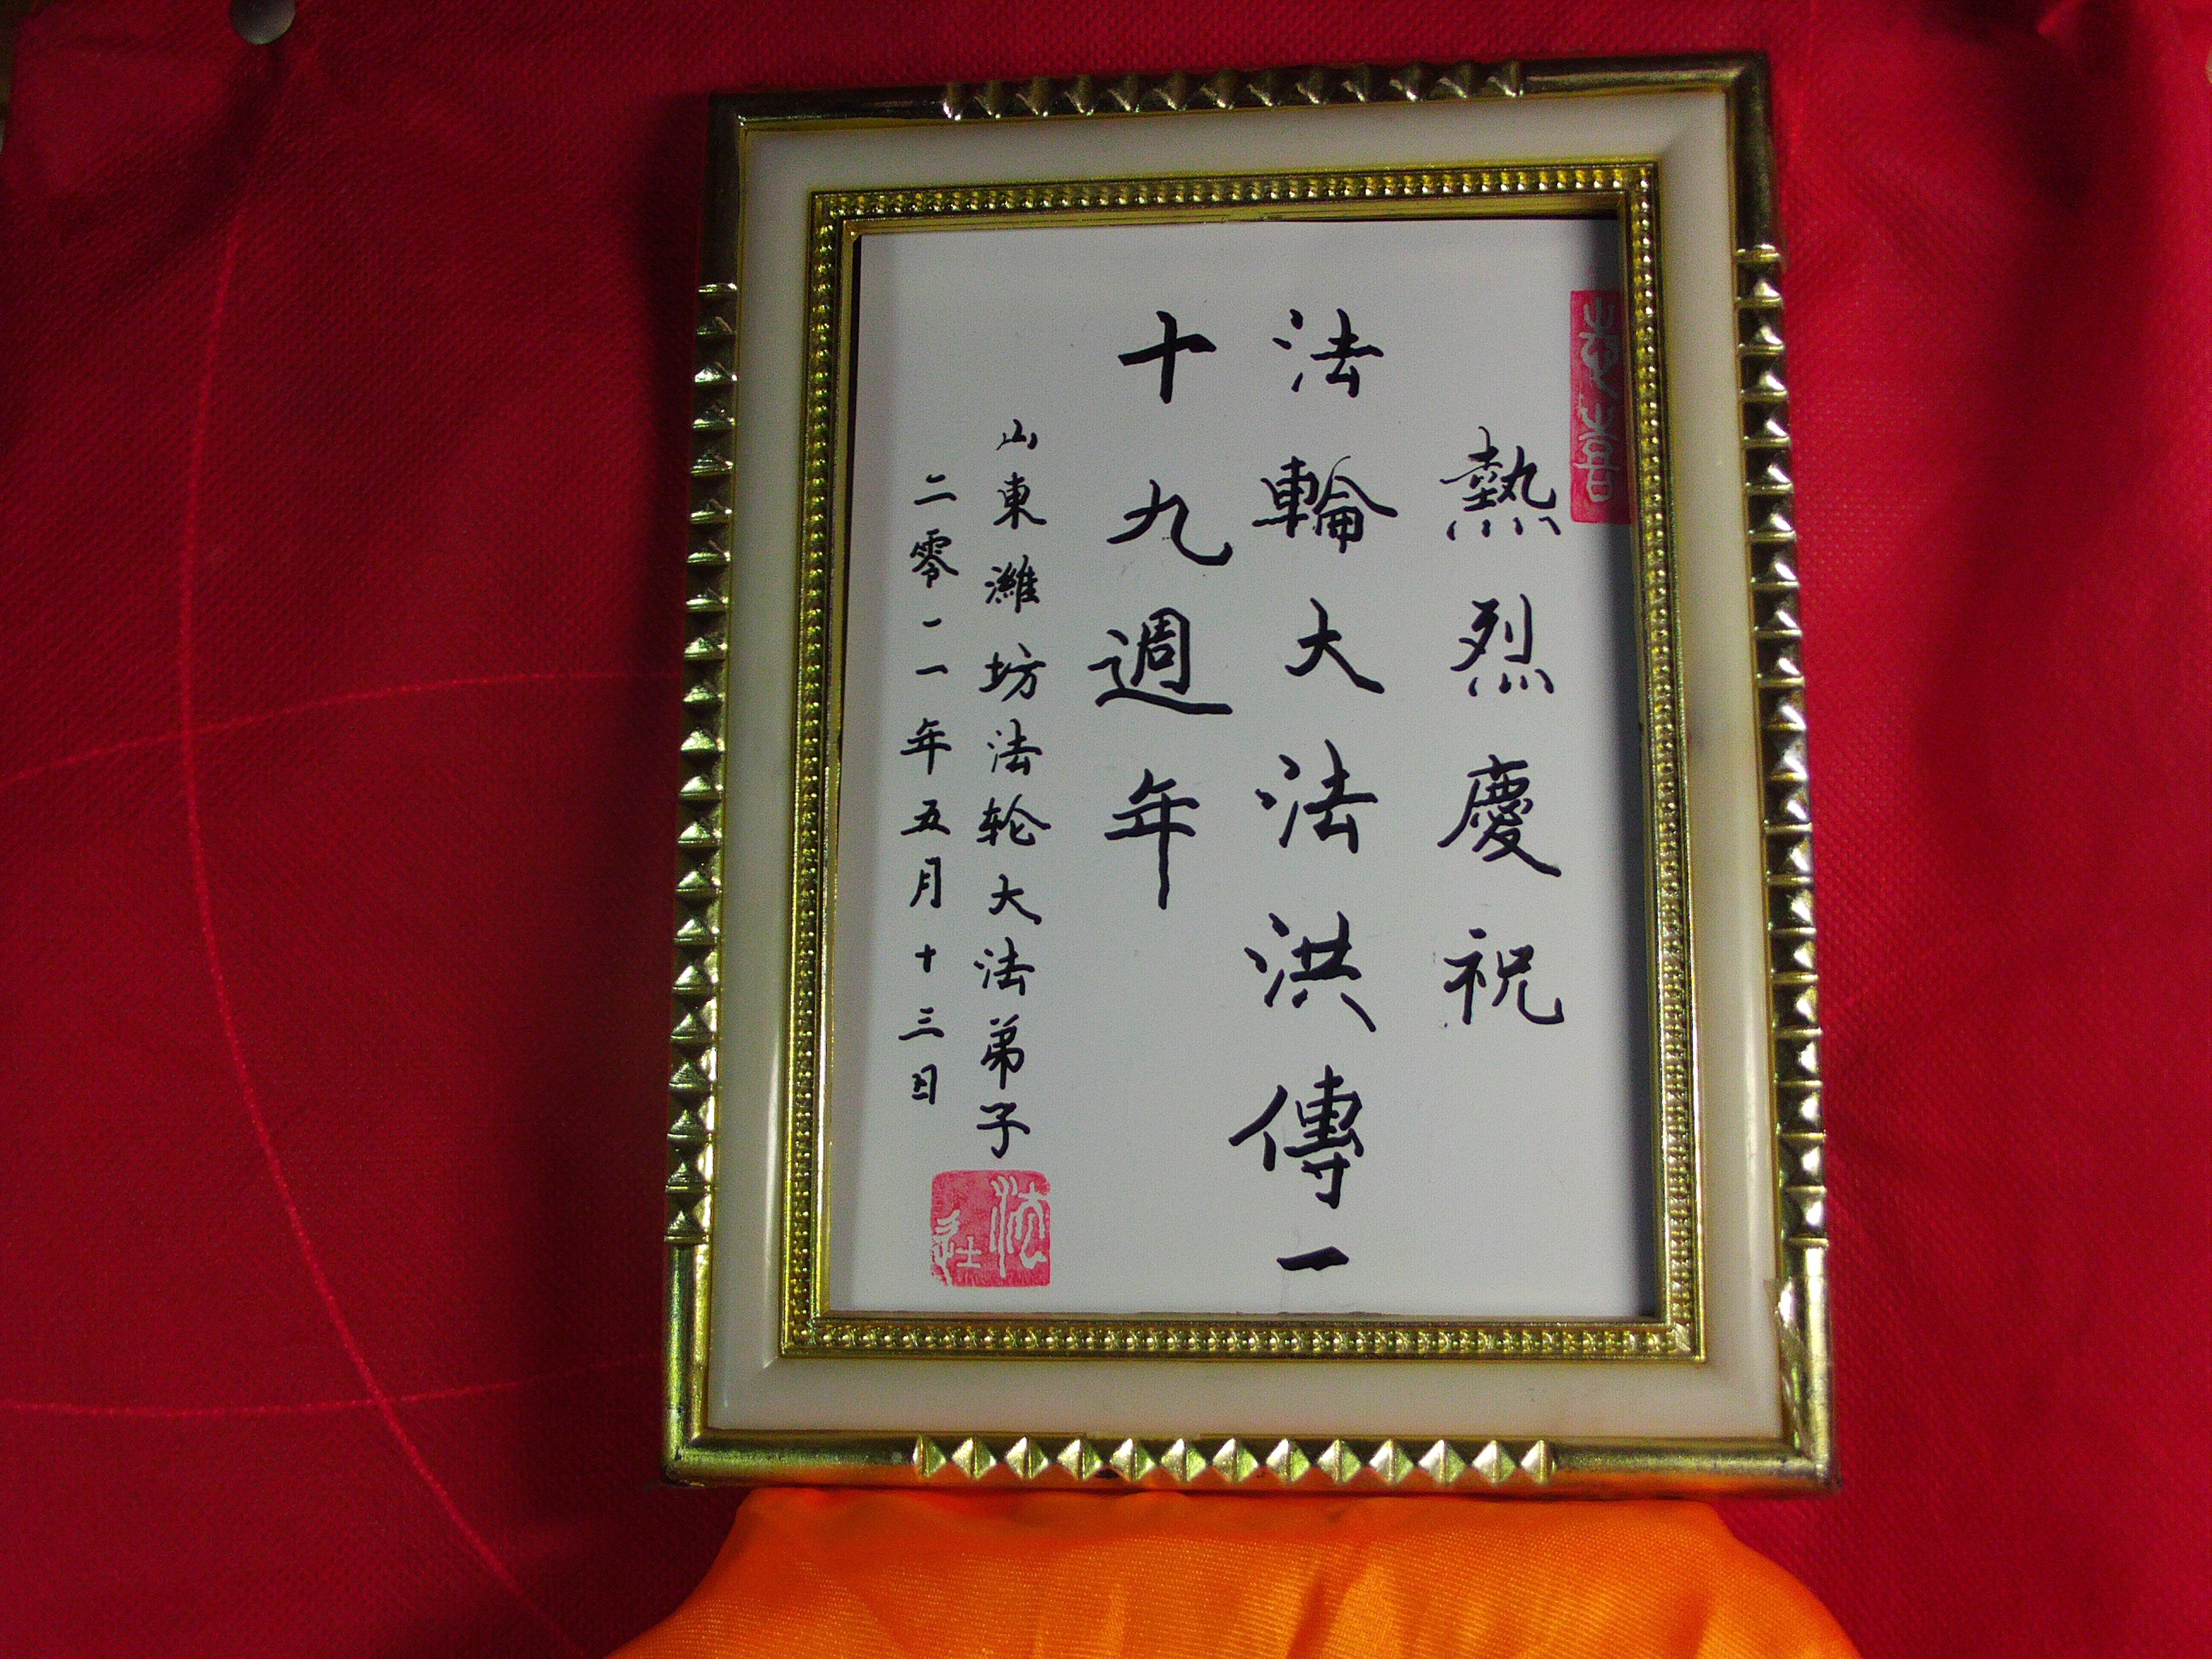 熱烈慶祝
法輪大法洪傳一
十九週年
山東濰坊法轮大法弟子
二零一一年五月十三日